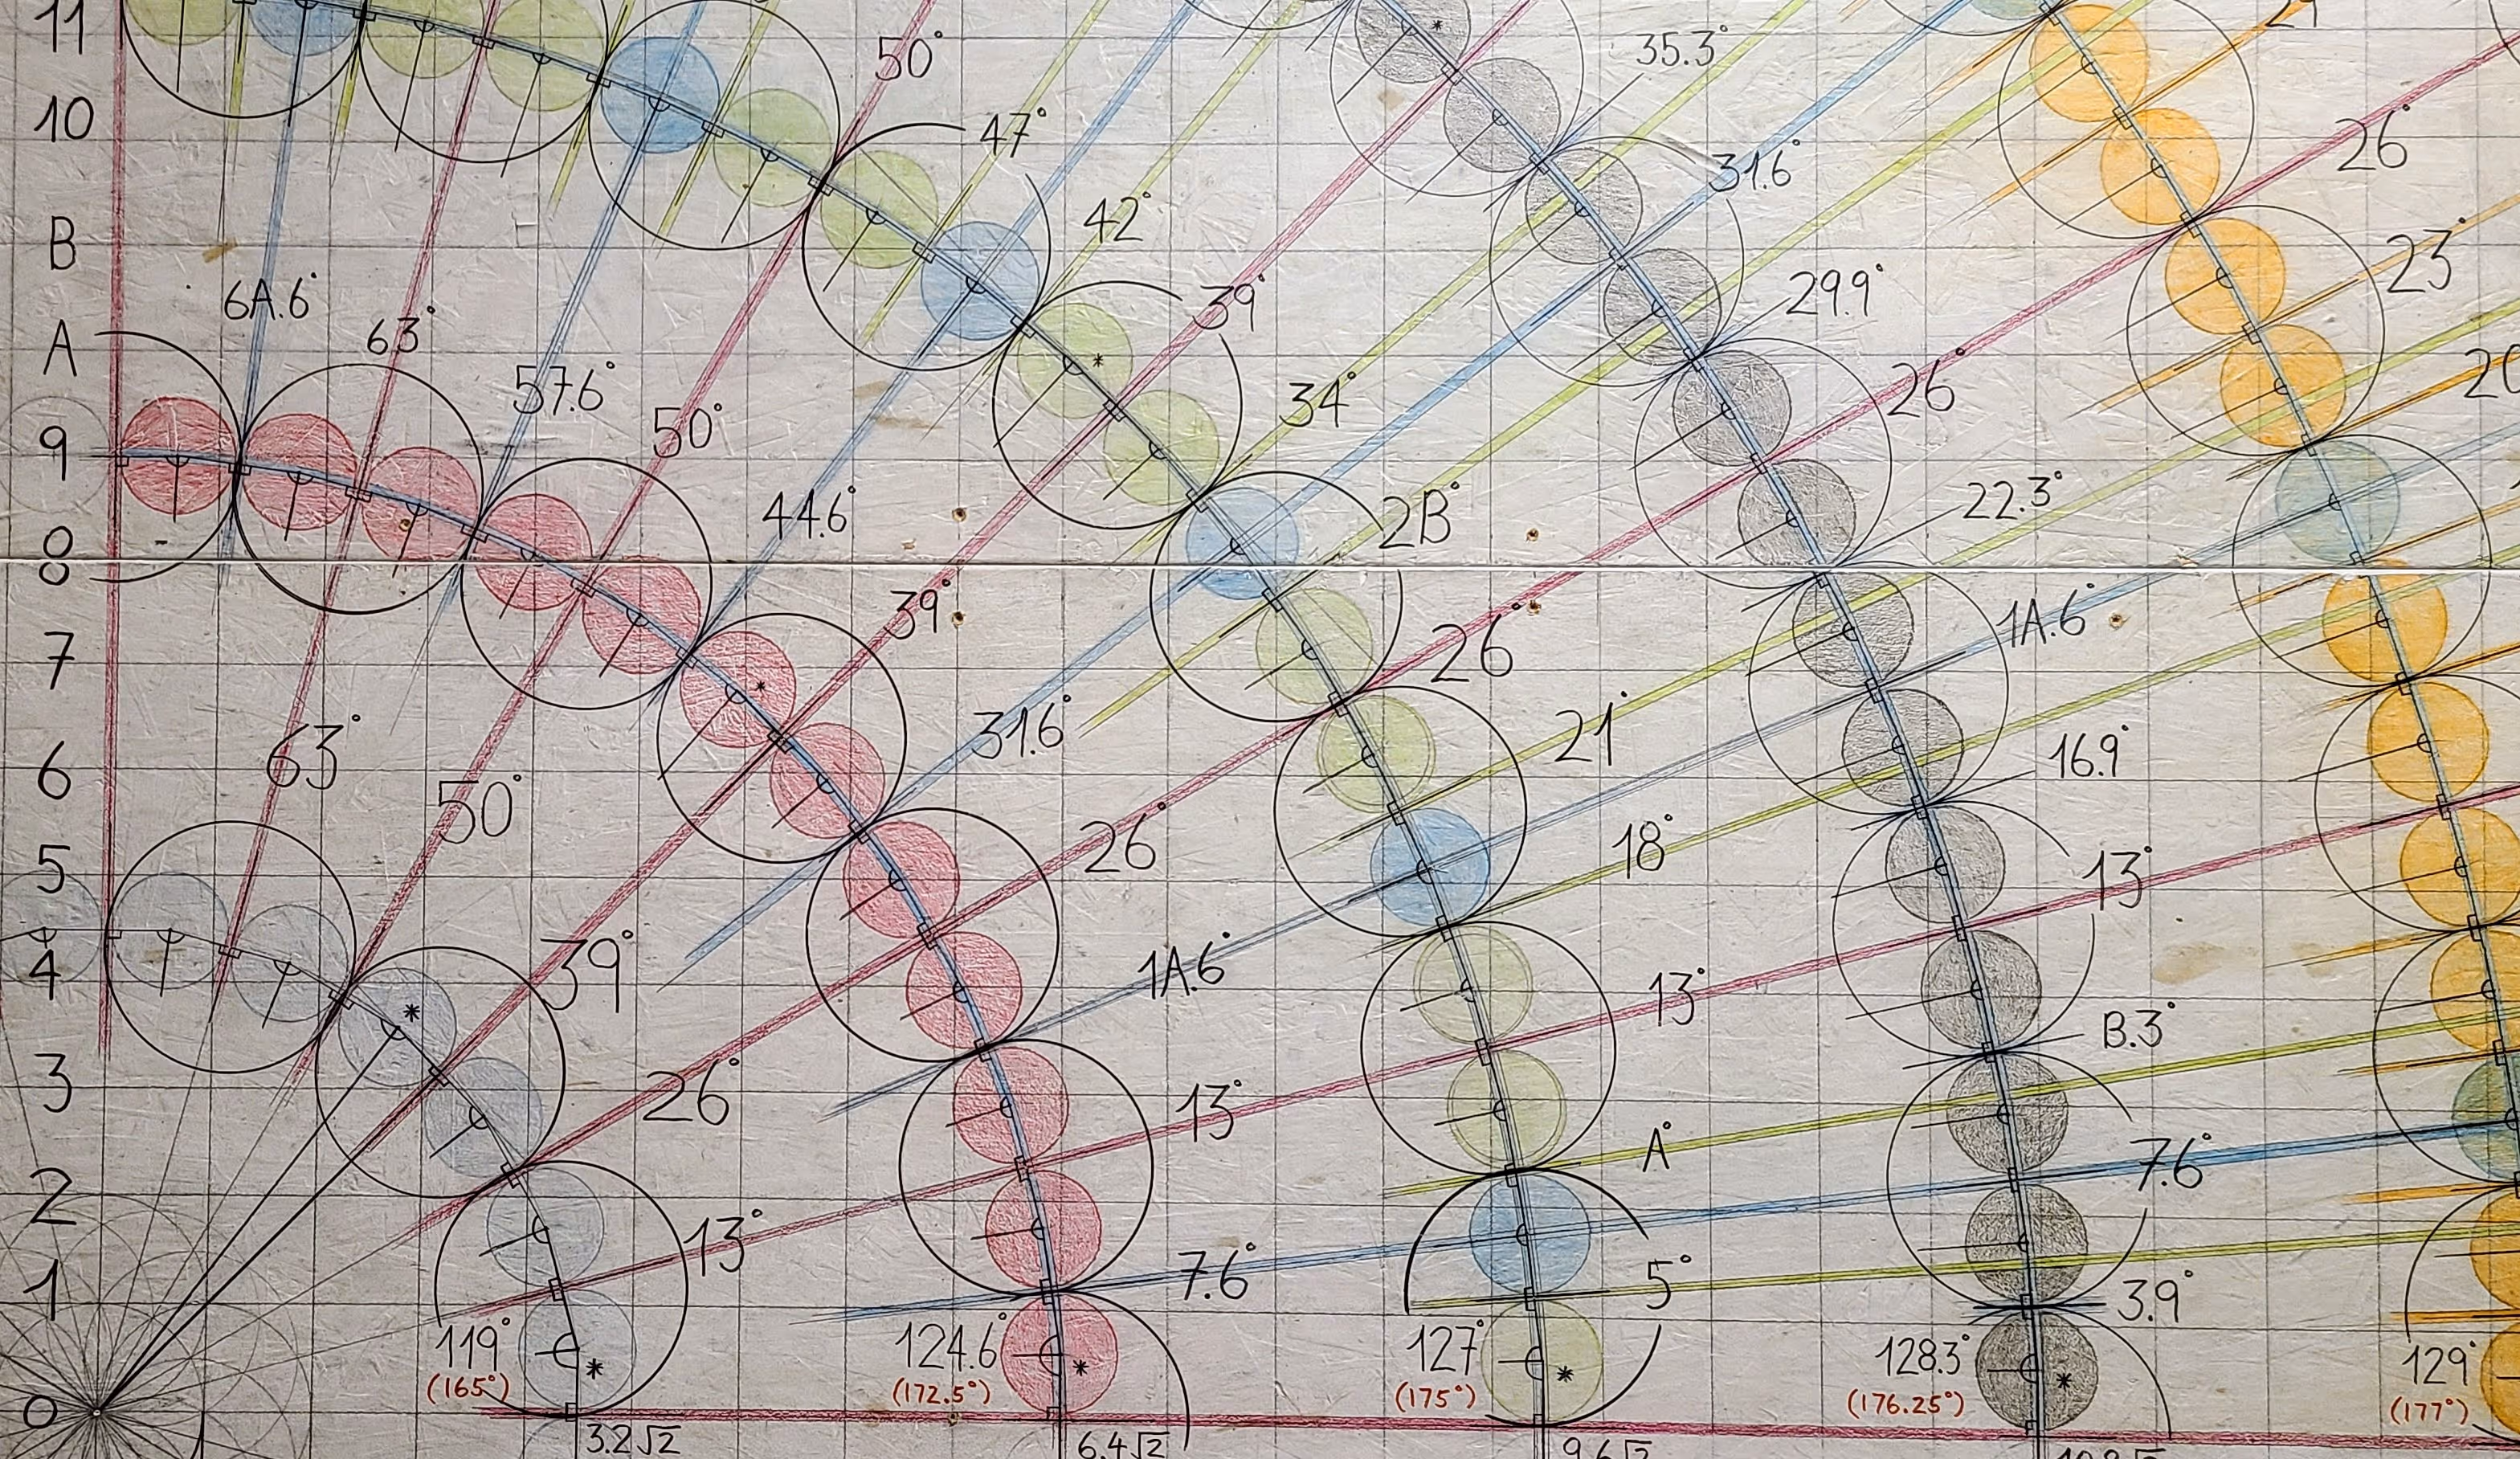 11
35.3°
21
50°
10
47°
31.6°
26°
42°
B
23
6A.6°
39°
29.9°
63°
A
57.6°
34°
26°
50°
9
44.6°
2B°
22.3°
8
39°
1A.6°
7
26°
63°
31.6°
21°
16.9°
6
50°
26°
18°
5
13°
39°
1A.6°
13°
4
B.3°
3
26°
13°
A°
7.6°
2
13°
7.6°
5°
3.9°
1
119°
124.6°
127°
128.3°
129°
(165°)
(172.5°)
(175°)
(176.25°)
(177°)
0
3.2√2
6.4√2
9.6√2